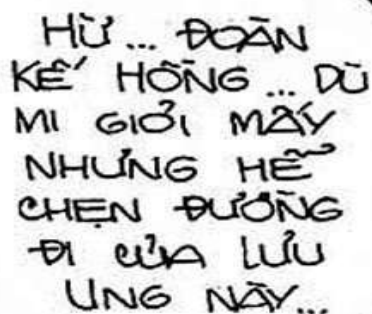 HỪ... ĐOÀN
KẾ HỒNG... DÙ
MI GIỎI MẤY
NHƯNG HỄ
CHẸN ĐƯỜNG
ĐI CỦA LƯU
UNG NÀY...